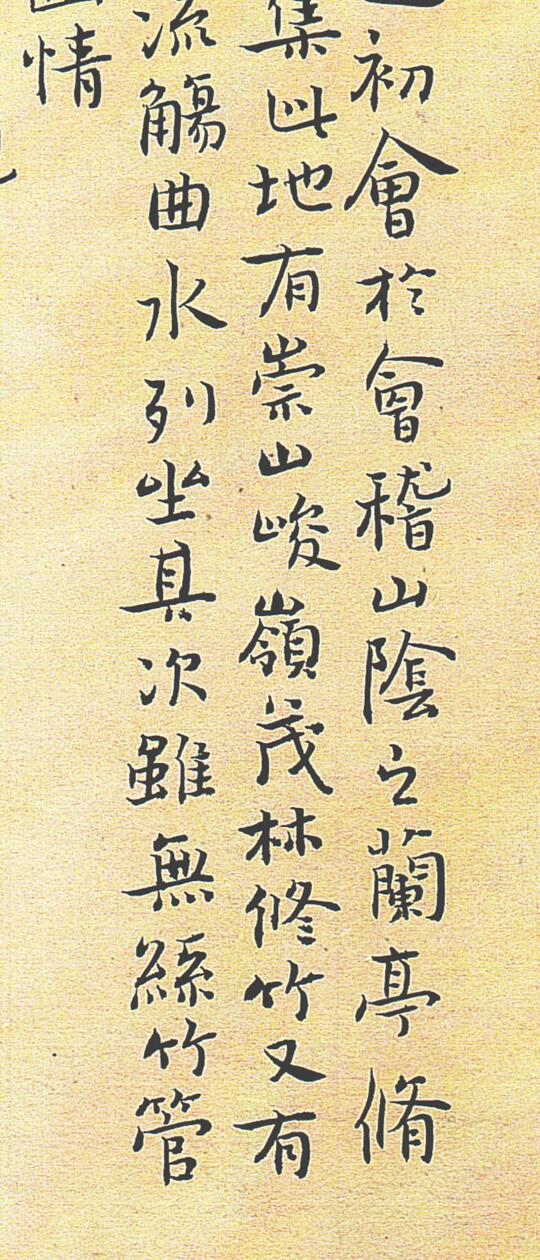 初會於會稽山陰之蘭亭脩
集此地有崇山峻嶺茂林修竹又有
流觴曲水列坐其次雖無絲竹管
情